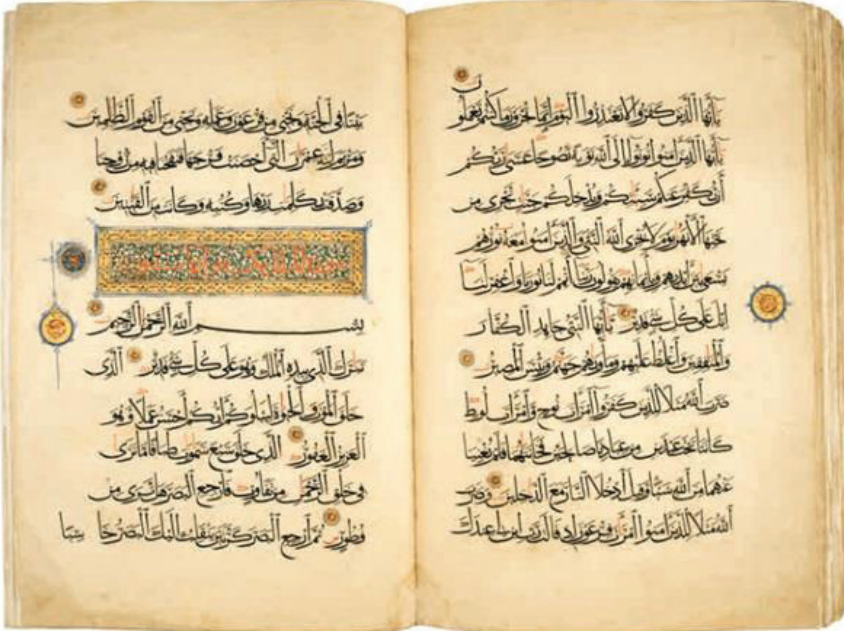 يأيها الذين كفروا لا تعتذروا اليوم إنما تجزون ما كنتم تعملون
يأيها الذين امنوا توبوا إلى الله توبة نصوحا عسى ربكم
أن يكفر عنكم سيئاتكم ويدخلكم جنت تجرى من
تحتها الأنهر يوم لا يخزى الله النبى والذين امنوا معه نورهم
يسعى بين أيديهم وبأيمانهم يقولون ربنا أتمم لنا نورنا واغفر لنا
إنك على كل شىء قدير يأيها النبى جاهد الكفار
والمنفقين واغلظ عليهم ومأواهم جهنم وبئس المصير
ضرب الله مثلا للذين كفروا امرأت نوح وامرأت لوط
كانتا تحت عبدين من عبادنا صالحين فخانتاهما فلم يغنيا
عنهما من الله شيئا وقيل ادخلا النار مع الدخلين وضرب
الله مثلا للذين امنوا امرأت فرعون إذ قالت رب ابن لى عندك
بيتا فى الجنة ونجنى من فرعون وعمله ونجنى من القوم الظلمين
ومريم ابنت عمرن التى أحصنت فرجها فنفخنا فيه من روحنا
وصدقت بكلمت ربها وكتبه وكانت من القنتين
بسم الله الرحمن الرحيم
تبرك الذى بيده الملك وهو على كل شىء قدير الذى
خلق الموت والحيوة ليبلوكم أيكم أحسن عملا وهو
العزيز الغفور الذى خلق سبع سموت طباقا ما ترى
فى خلق الرحمن من تفاوت فارجع البصر هل ترى من
فطور ثم ارجع البصر كرتين ينقلب إليك البصر خا سئا